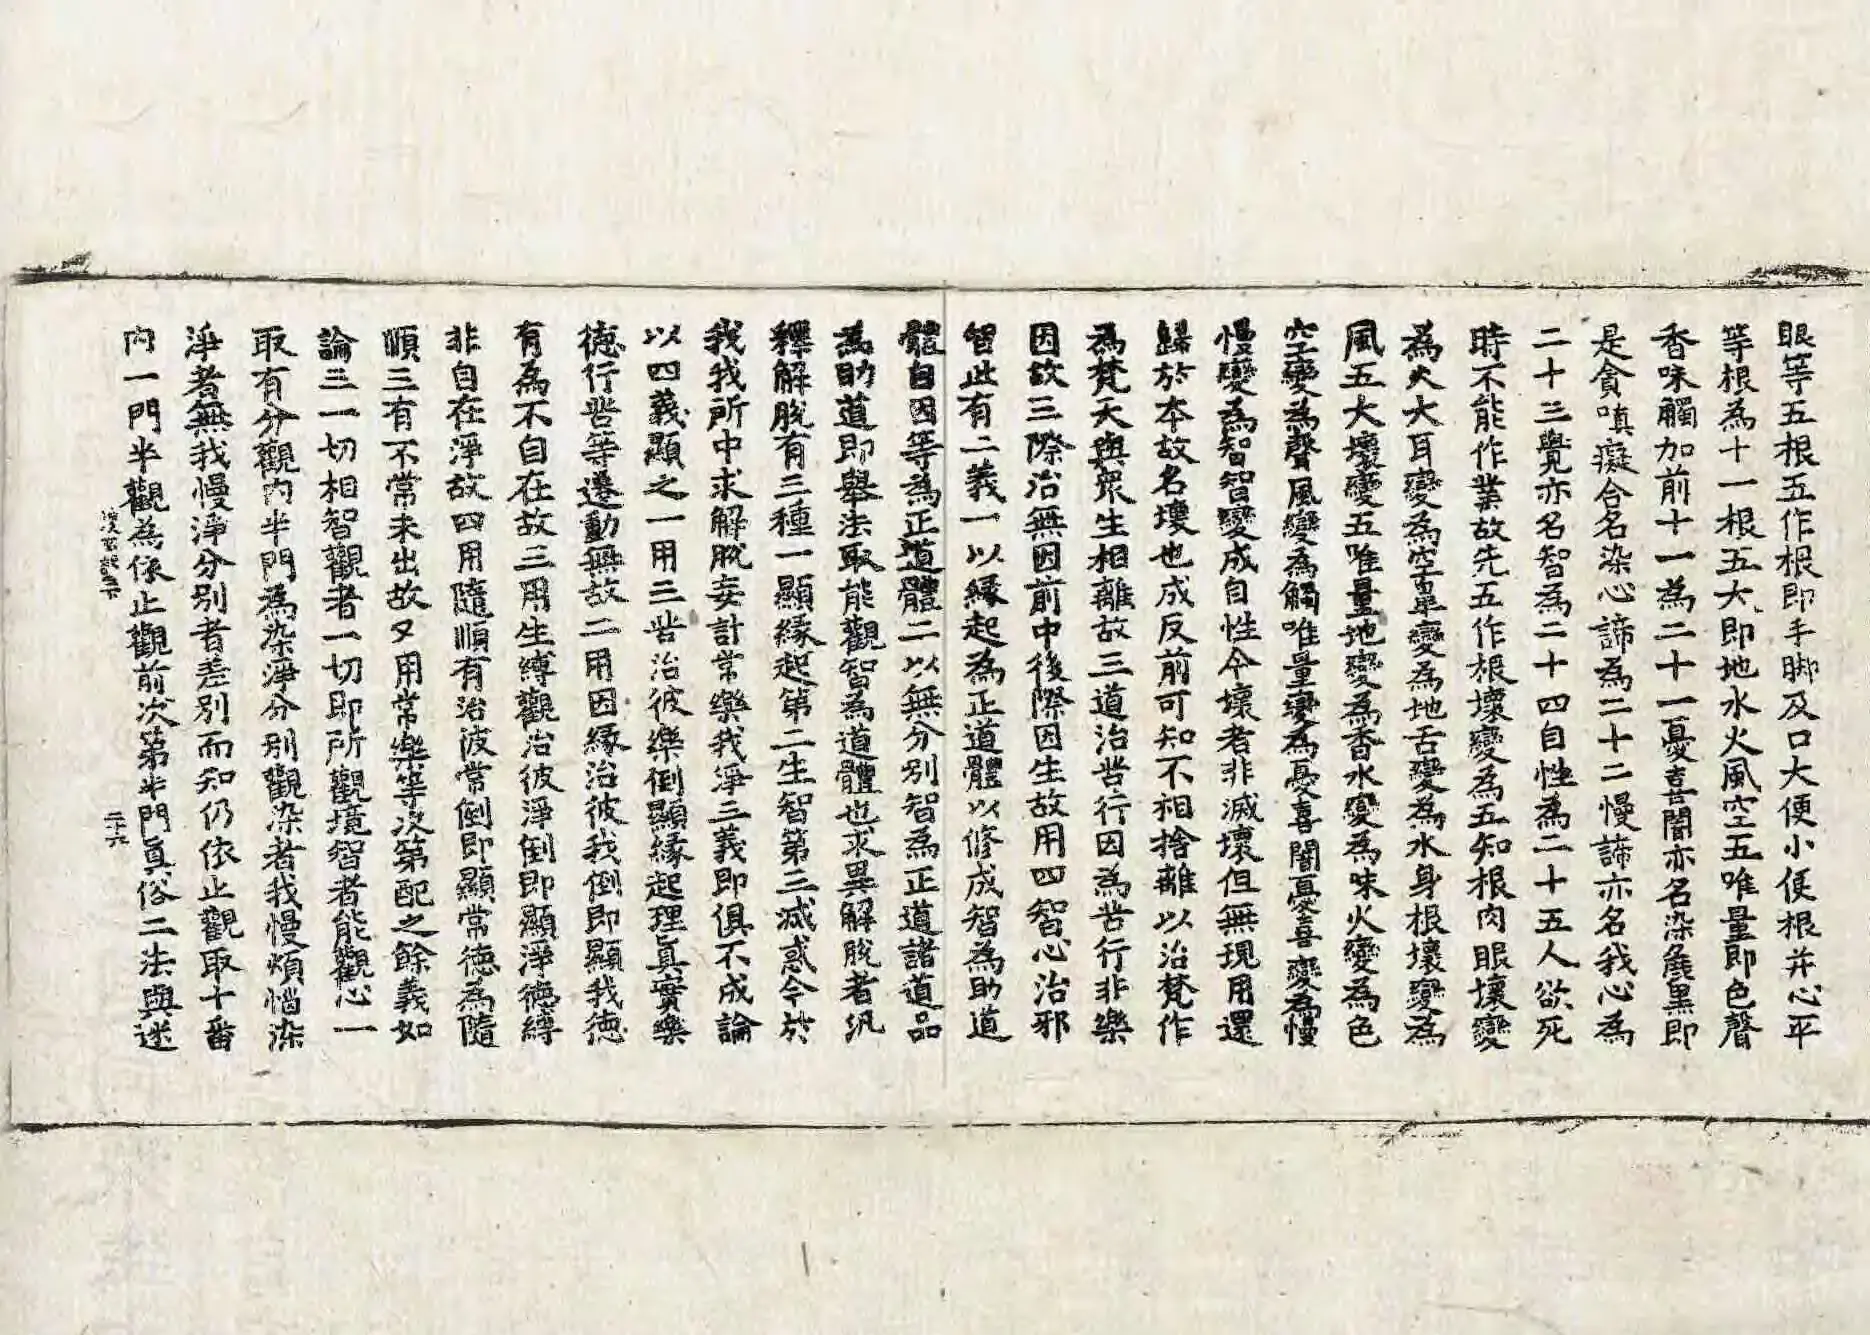 眼等五根五作根即手脚及口大便小便根并心平
等根為十一根五大即地水火風空五唯量即色聲
香味觸加前十一為二十一憂喜闇亦名染麁黑即
是貪嗔癡合名染心諦為二十二慢諦亦名我心為
二十三覺亦名智為二十四自性為二十五人欲死
時不能作業故先五作根壞變為五知根肉眼壞變
為火大耳變為空鼻變為地舌變為水身根壞變為
風五大壞變五唯量地變為香水變為味火變為色
空變為聲風變為觸唯量變為憂喜闇憂喜變為慢
慢變為智智變成自性今壞者非滅壞但無現用還
歸於本故名壞也成反前可知不相捨離以治梵作
為梵天與衆生相離故三道治苦行因為苦行非樂
因故三際治無因前中後際因生故用四智心治邪
智此有二義一以緣起為正道體以修成智為助道
體自因等為正道體二以無分別智為正道諸道品
為助道即舉法取能觀智為道體也求異解脫者汎
釋解脫有三種一顯緣起第二生智第三滅惑今於
我我所中求解脫妄計常樂我淨三義即俱不成論
以四義顯之一用三苦治彼樂倒顯緣起理真實樂
德行苦等遷動無故二用因緣治彼我倒即顯我德
有為不自在故三用生縛觀治彼淨倒即顯淨德縛
非自在淨故四用隨順有治彼常倒即顯常德為隨
順三有不常未出故又用常樂等次第配之餘義如
論三一切相智觀者一切即所觀境智者能觀心一
取有分觀內半門為染淨分別觀染者我慢煩惱染
淨者無我慢淨分別者差別而知仍依止觀取十番
內一門半觀為依止觀前次第半門真俗二法與迷
二十六